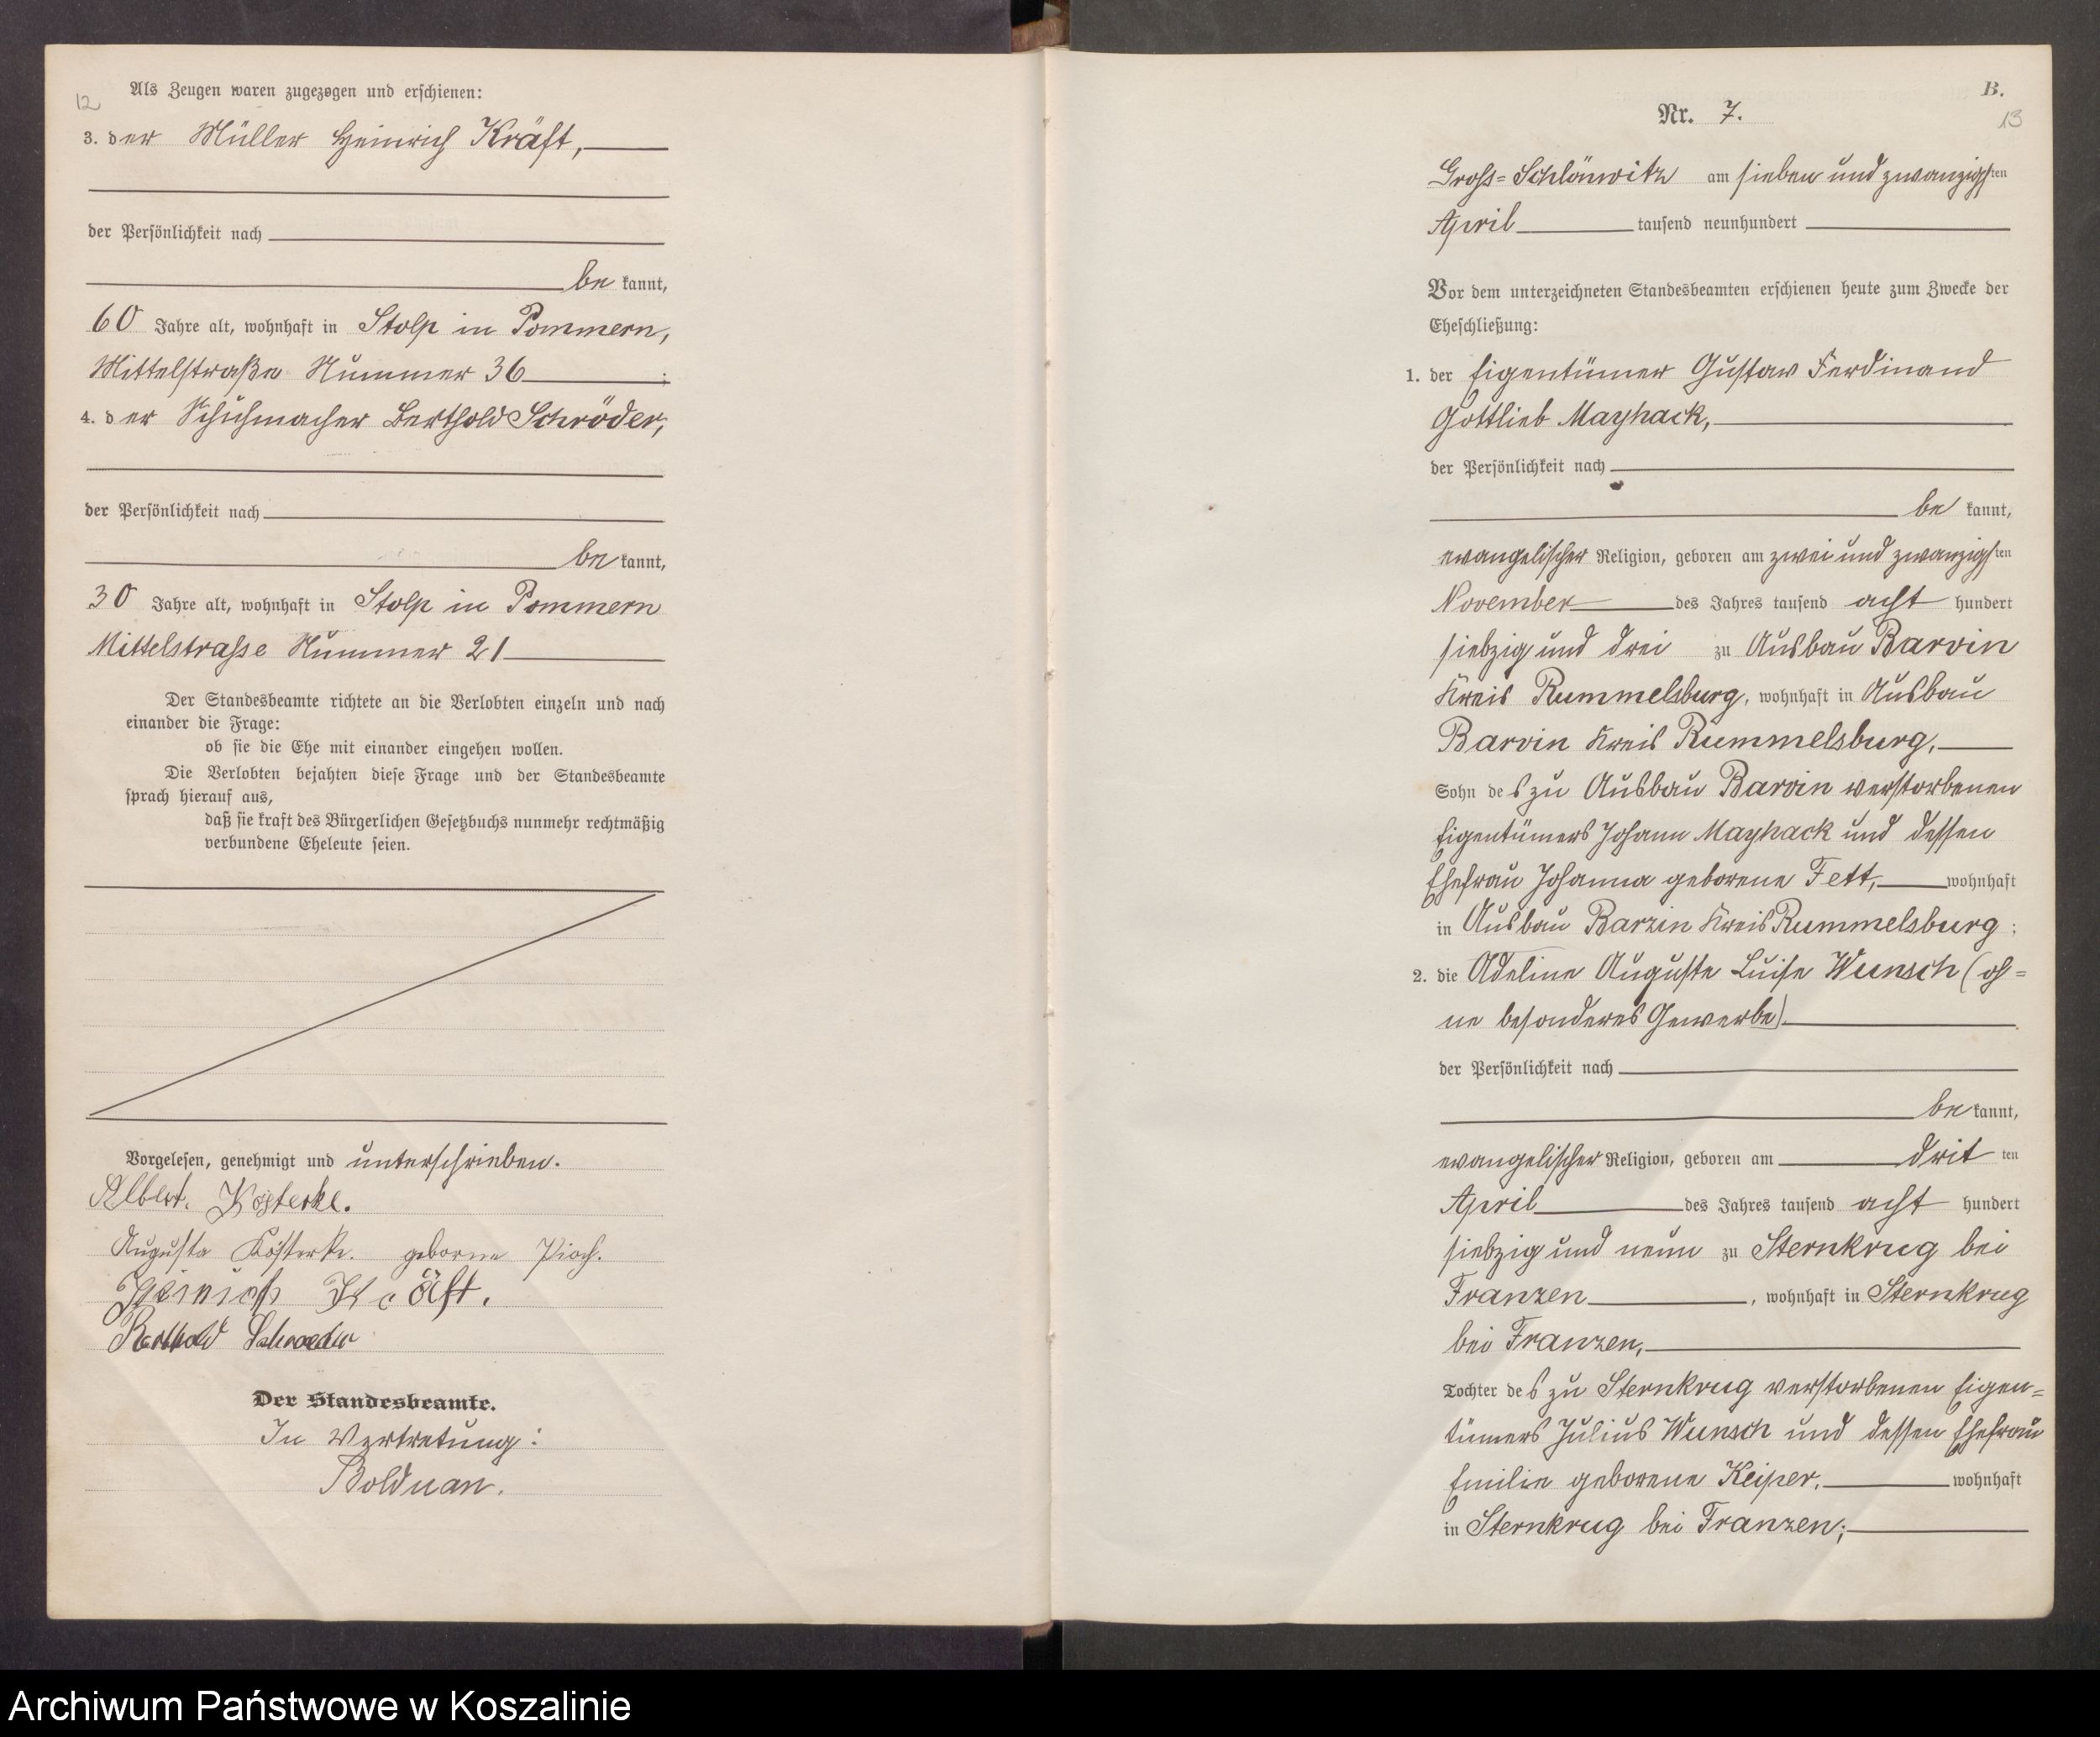 12
Als Zeugen waren zugezogen und erschienen:
3. der Müller Heinrich Kräft,
der Persönlichkeit nach
be kannt,
60 Jahre alt, wohnhaft in Stolp in Pommern,
Mittelstraße Nummer 36 ;
4. der Schuhmacher Berthold Schröder,
der Persönlichkeit nach
be kannt,
30 Jahre alt, wohnhaft in Stolp in Pommern
Mittelstrasse Nummer 21
Der Standesbeamte richtete an die Verlobten einzeln und nach
einander die Frage:
ob sie die Ehe mit einander eingehen wollen.
Die Verlobten bejahten diese Frage und der Standesbeamte
sprach hierauf aus,
daß sie kraft des Bürgerlichen Gesetzbuchs nunmehr rechtmäßig
verbundene Eheleute seien.
Vorgelesen, genehmigt und unterschrieben.
Albert. Kösterke.
Augusta Kösterke. geborne Pioch.
Heinrich Kräft.
Berthold Schroeder
Der Standesbeamte.
In Vertretung:
Bolduan.
B.
13
Nr. 7.
Gross=Schlönwitz am sieben und zwanzigsten
April tausend neunhundert
Vor dem unterzeichneten Standesbeamten erschienen heute zum Zwecke der
Eheschließung:
1. der Eigentümer Gustav Ferdinand
Gottlieb Mayhack,
der Persönlichkeit nach
be kannt,
evangelischer Religion, geboren am zwei und zwanzigsten
November des Jahres tausend acht hundert
siebzig und drei zu Ausbau Barvin
Kreis Rummelsburg, wohnhaft in Ausbau
Barvin Kreis Rummelsburg,
Sohn des zu Ausbau Barvin verstorbenen
Eigentümers Johann Mayhack und dessen
Ehefrau Johanna geborene Fett, wohnhaft
in Ausbau Barzin Kreis Rummelsburg ;
2. die Adeline Auguste Luise Wunsch (oh=
ne besonderes Gewerbe)
der Persönlichkeit nach
be kannt,
evangelischer Religion, geboren am drit ten
April des Jahres tausend acht hundert
siebzig und neun zu Sternkrug bei
Franzen, wohnhaft in Sternkrug
bei Franzen,
Tochter des zu Sternkrug verstorbenen Eigen=
tümers Julius Wunsch und dessen Ehefrau
Emilie geborene Keiper, wohnhaft
in Sternkrug bei Franzen;
Archiwum Państwowe w Koszalinie